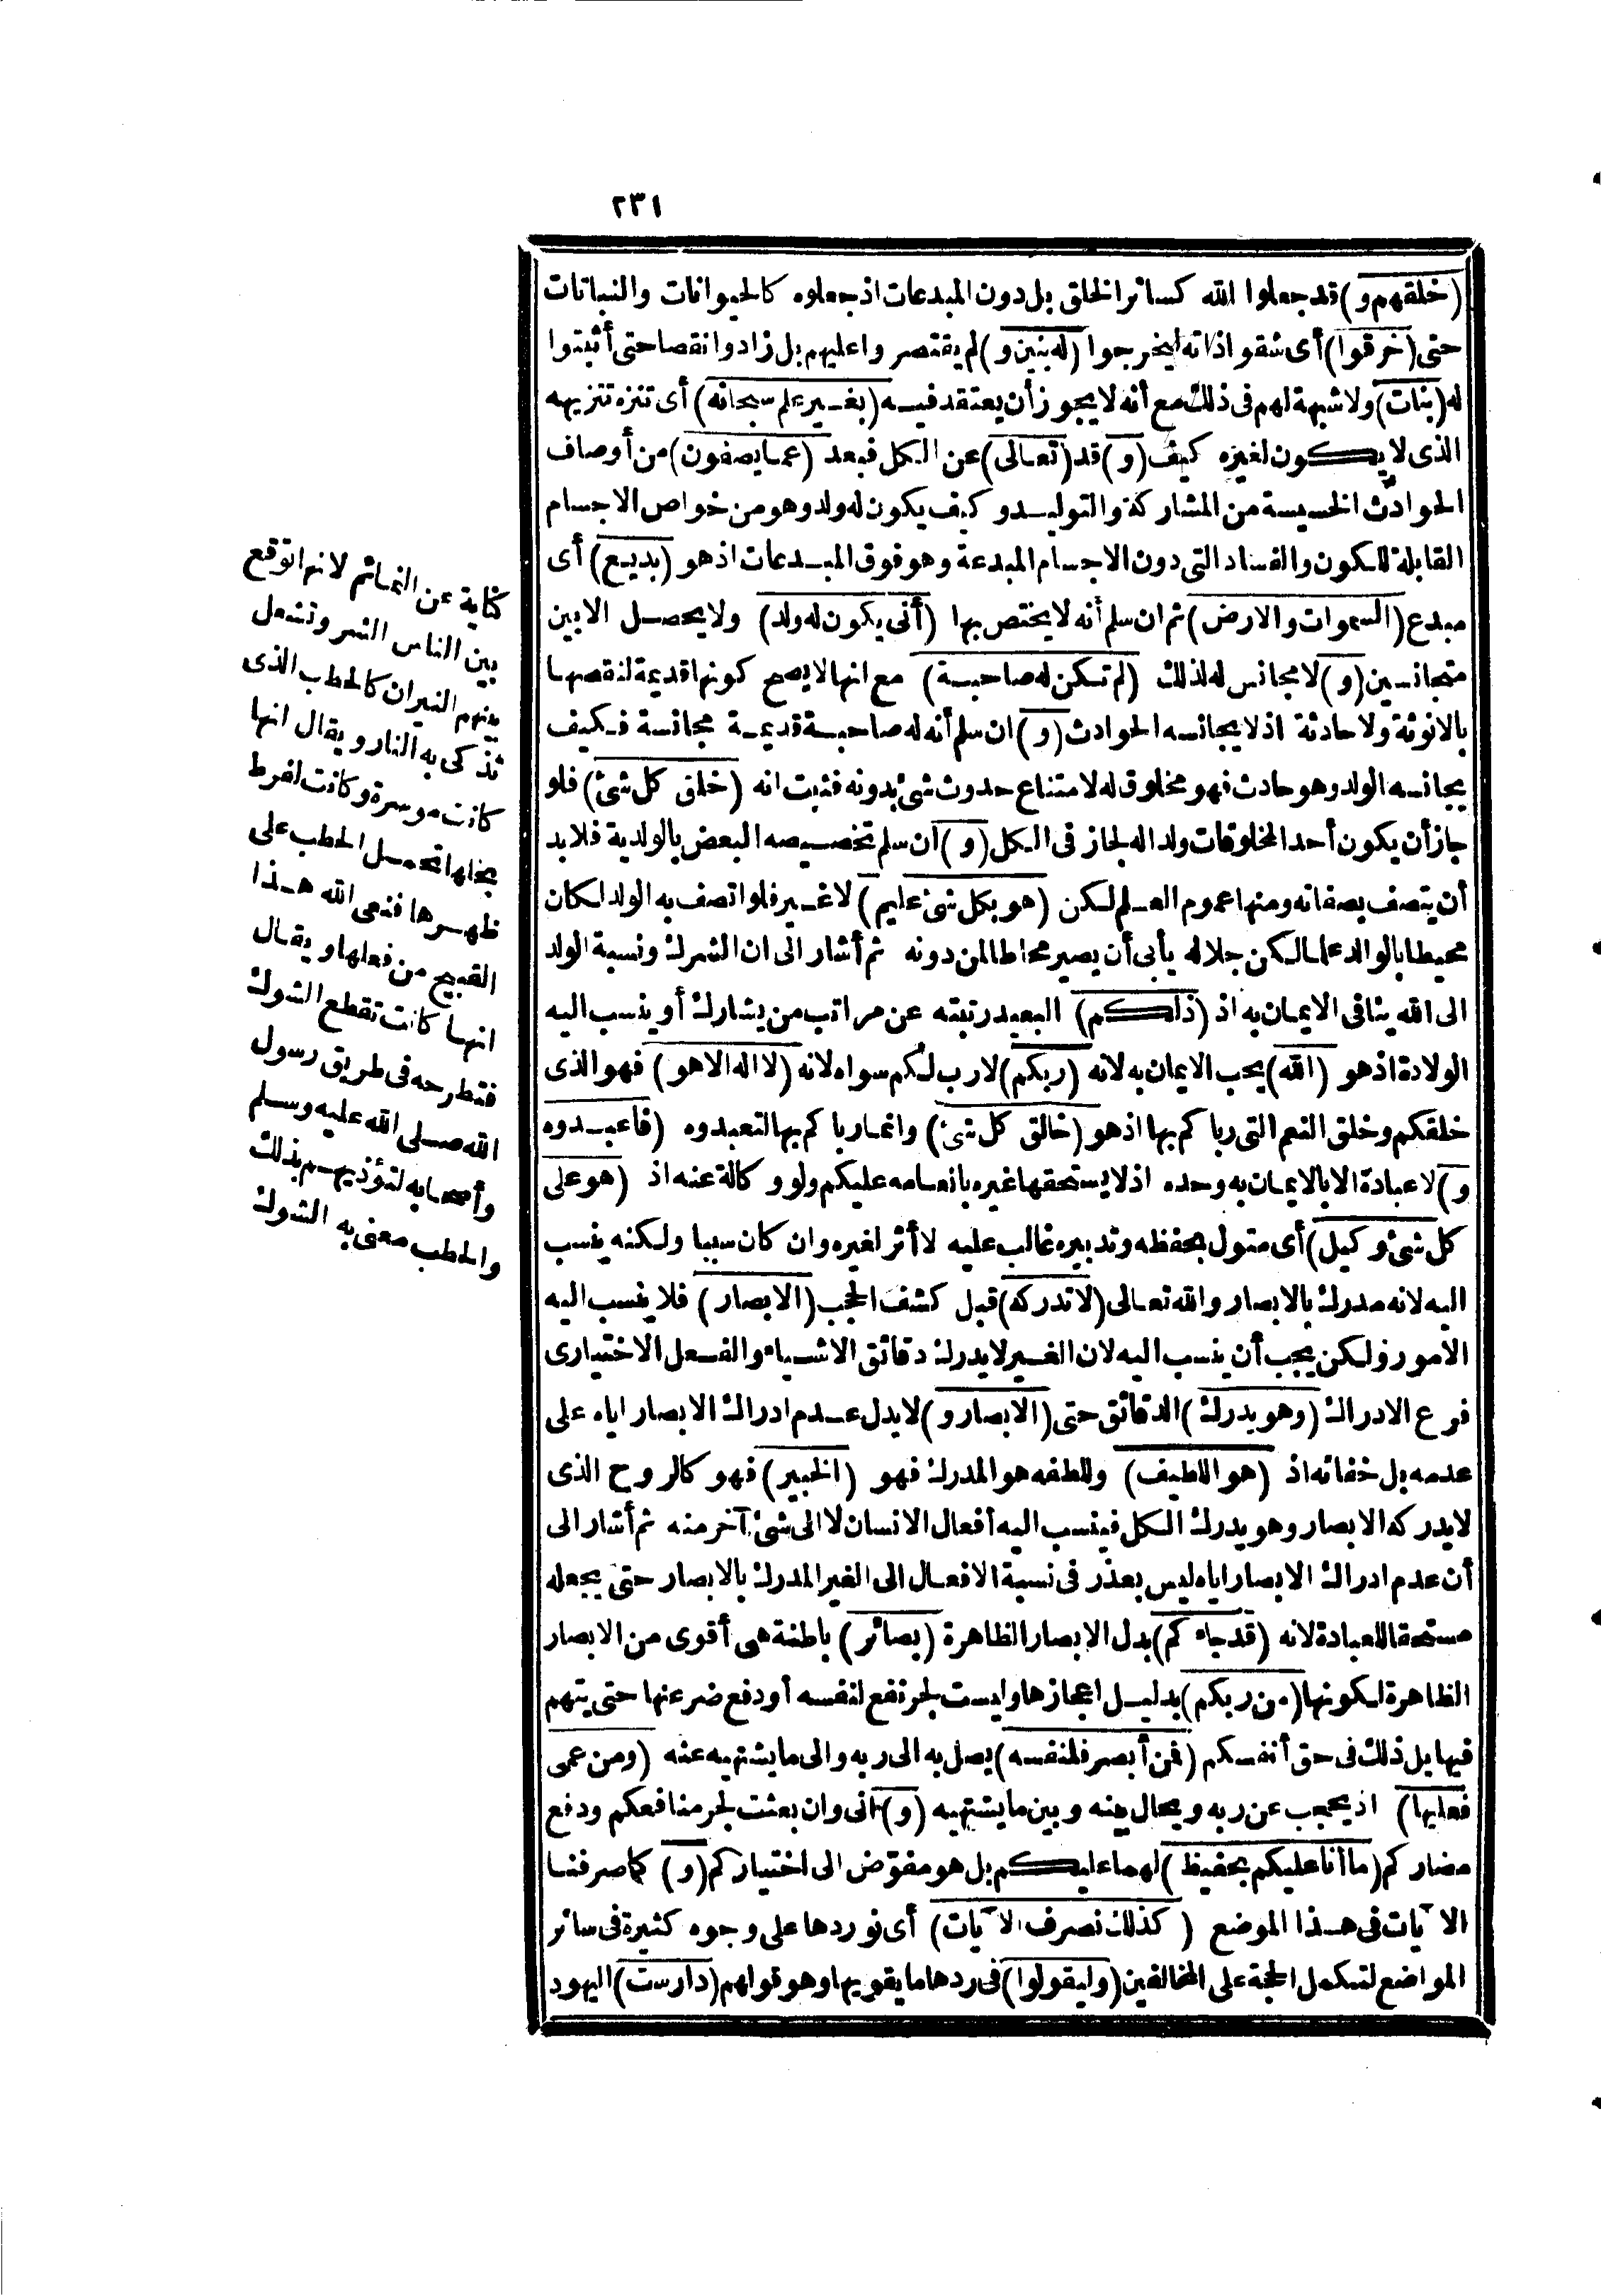 ٢٣١
(خلقهم و) قد جعلوا الله كسائر الخلق بل دون المبدعات اذ جعلوه كالحيوانات والنباتات
حتى (خرقوا) أى شقوا ذاته ليخرجوا (له بنين و) لم يقتصروا عليهم بل زادوا نقصا حتى أثبتوا
له (بنات) ولا شبهة لهم فى ذلك مع أنه لا يجوز أن يعتقد فيه (بغير علم سبحانه) أى تنزه تنزيهه
الذى لا يكون لغيره كيف (و) قد (تعالى) عن الكل فبعد (عما يصفون) من أوصاف
الحوادث الخسيسة من المشاركة والتوليد وكيف يكون له ولد وهو من خواص الاجسام
القابلة للكون والفساد التى دون الاجسام المبدعة وهو فوق المبدعات اذ هو (بديع) أى
مبدع (السموات والارض) ثم ان سلم أنه لا يختص بها (أنى يكون له ولد) ولا يحصل الا بين
متجانسين (و) لا مجانس له لذلك (لم تكن له صاحبة) مع انها لا يصح كونها قديمة لنقصها
بالانوثة ولا حادثة اذ لا يجانسه الحوادث (و) ان سلم أنه له صاحبة قديمة مجانسة فكيف
يجانسه الولد وهو حادث فهو مخلوق له لامتناع حدوث شئ بدونه فثبت انه (خلق كل شئ) فلو
جاز أن يكون أحد المخلوقات ولدا له لجاز فى الكل (و) ان سلم تخصيصه البعض بالولدية فلابد
أن يتصف بصفاته ومنها عموم العلم لكن (هو بكل شئ عليم) لا غير فلو اتصف به الولد لكان
محيطا بالوالد علما لكن جلاله يأبى أن يصير محاطا لمن دونه ثم أشار الى ان الشرك ونسبة الولد
الى الله ينافى الايمان به اذ (ذلكم) البعيد رتبته عن مراتب من يشارك أو ينسب اليه
الولادة اذ هو (الله) يجب الايمان به لانه (ربكم) لا رب لكم سواه لانه (لا اله الا هو) فهو الذى
خلقكم وخلق النعم التى رباكم بها اذ هو (خالق كل شئ) وانما رباكم بها لتعبدوه (فاعبدوه
و) لا عبادة الا بالايمان به وحده اذ لا يستحقها غيره بانعامه عليكم ولو وكالة عنه اذ (هو على
كل شئ وكيل) أى متول بحفظه وتدبيره غالب عليه لا أثر لغيره وان كان سببا ولكنه ينسب
اليه لانه مدرك بالابصار والله تعالى (لا تدركه) قبل كشف الحجب (الابصار) فلا ينسب اليه
الامور ولكن يجب أن ينسب اليه لان الغير لا يدرك دقائق الاشياء والفعل الاختيارى
فرع الادراك (وهو يدرك) الدقائق حتى (الابصار و) لا يدل عدم ادراك الابصار اياه على
عدمه بل خفائه اذ (هو اللطيف) وللطفه هو المدرك فهو (الخبير) فهو كالروح الذى
لا يدركه الابصار وهو يدرك الكل فينسب اليه أفعال الانسان لا الى شئ آخر منه ثم أشار الى
أن عدم ادراك الابصار اياه ليس بعذر فى نسبة الافعال الى الغير المدرك بالابصار حتى يجعله
مستحقا للعبادة لانه (قد جاءكم) بدل الابصار الظاهرة (بصائر) باطنة هى أقوى من الابصار
الظاهرة لكونها (من ربكم) بدليل اعجازها وليست لجر نفع لنفسه أو دفع ضر عنها حتى يتهم
فيها بل ذلك فى حق أنفسكم (فمن أبصر فلنفسه) يصل به الى ربه والى ما يشتهيه عنه (ومن عمى
فعليها) اذ يحجب عن ربه ويحال بينه وبين ما يشتهيه (و) انى وان بعثت لجر منافعكم ودفع
مضاركم (ما أنا عليكم بحفيظ) لهما عليكم بل هو مفوّض الى اختياركم (و) كما صرفنا
الآيات فى هذا الموضع (كذلك نصرف الآيات) أى نوردها على وجوه كثيرة فى سائر
المواضع لتكمل الحجة على المخالفين (وليقولوا) فى ردها ما يقويها وهو قولهم (دارست) اليهود
كناية عن النمائم لانها توقع
بين الناس الشر وتشعل
بينهم النيران كالحطب الذى
تذكى به النار ويقال انها
كانت موسرة وكانت لفرط
بخلها تحمل الحطب على
ظهرها فنعى الله هذا
القبيح من فعلها ويقال
انها كانت تقطع الشوك
فتطرحه فى طريق رسول
الله صلى الله عليه وسلم
وأصحابه لتؤذيهم بذلك
والحطب معنى به الشوك